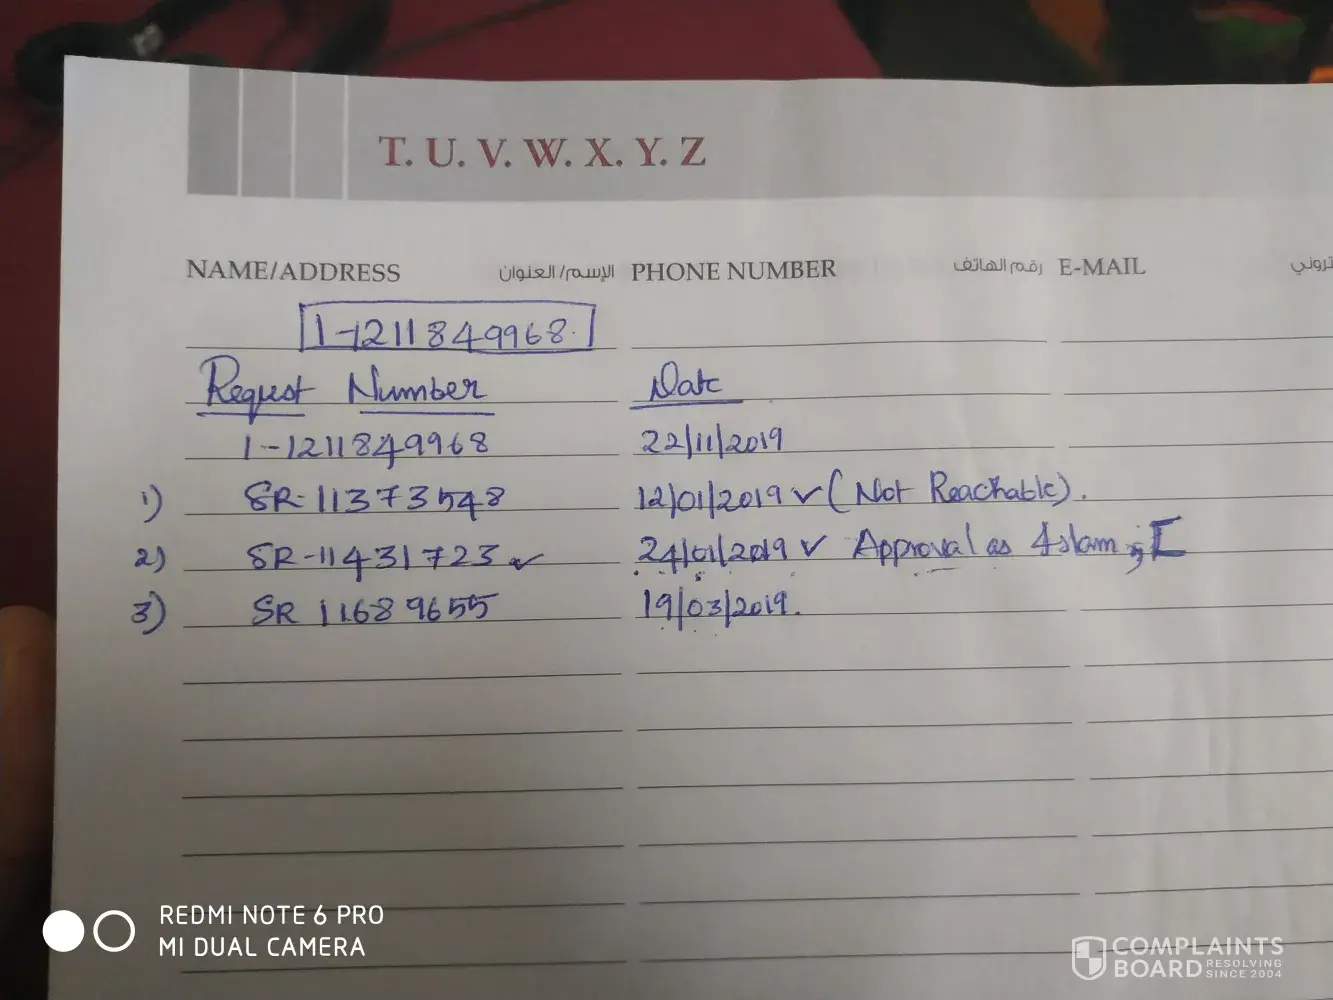 T. U. V. W. X. Y. Z
NAME/ADDRESS الإسم/ العنوان PHONE NUMBER رقم الهاتف E-MAIL
1-1211849968.
Request Number Date
1-1211849968 22/11/2019
1) SR-11373548 12/01/2019 ✓ (Not Reachable).
2) SR-11431723 ✓ 24/01/2019 ✓ Approval as Islam
3) SR 11689655 19/03/2019.
REDMI NOTE 6 PRO
MI DUAL CAMERA
COMPLAINTS
BOARD RESOLVING
SINCE 2004